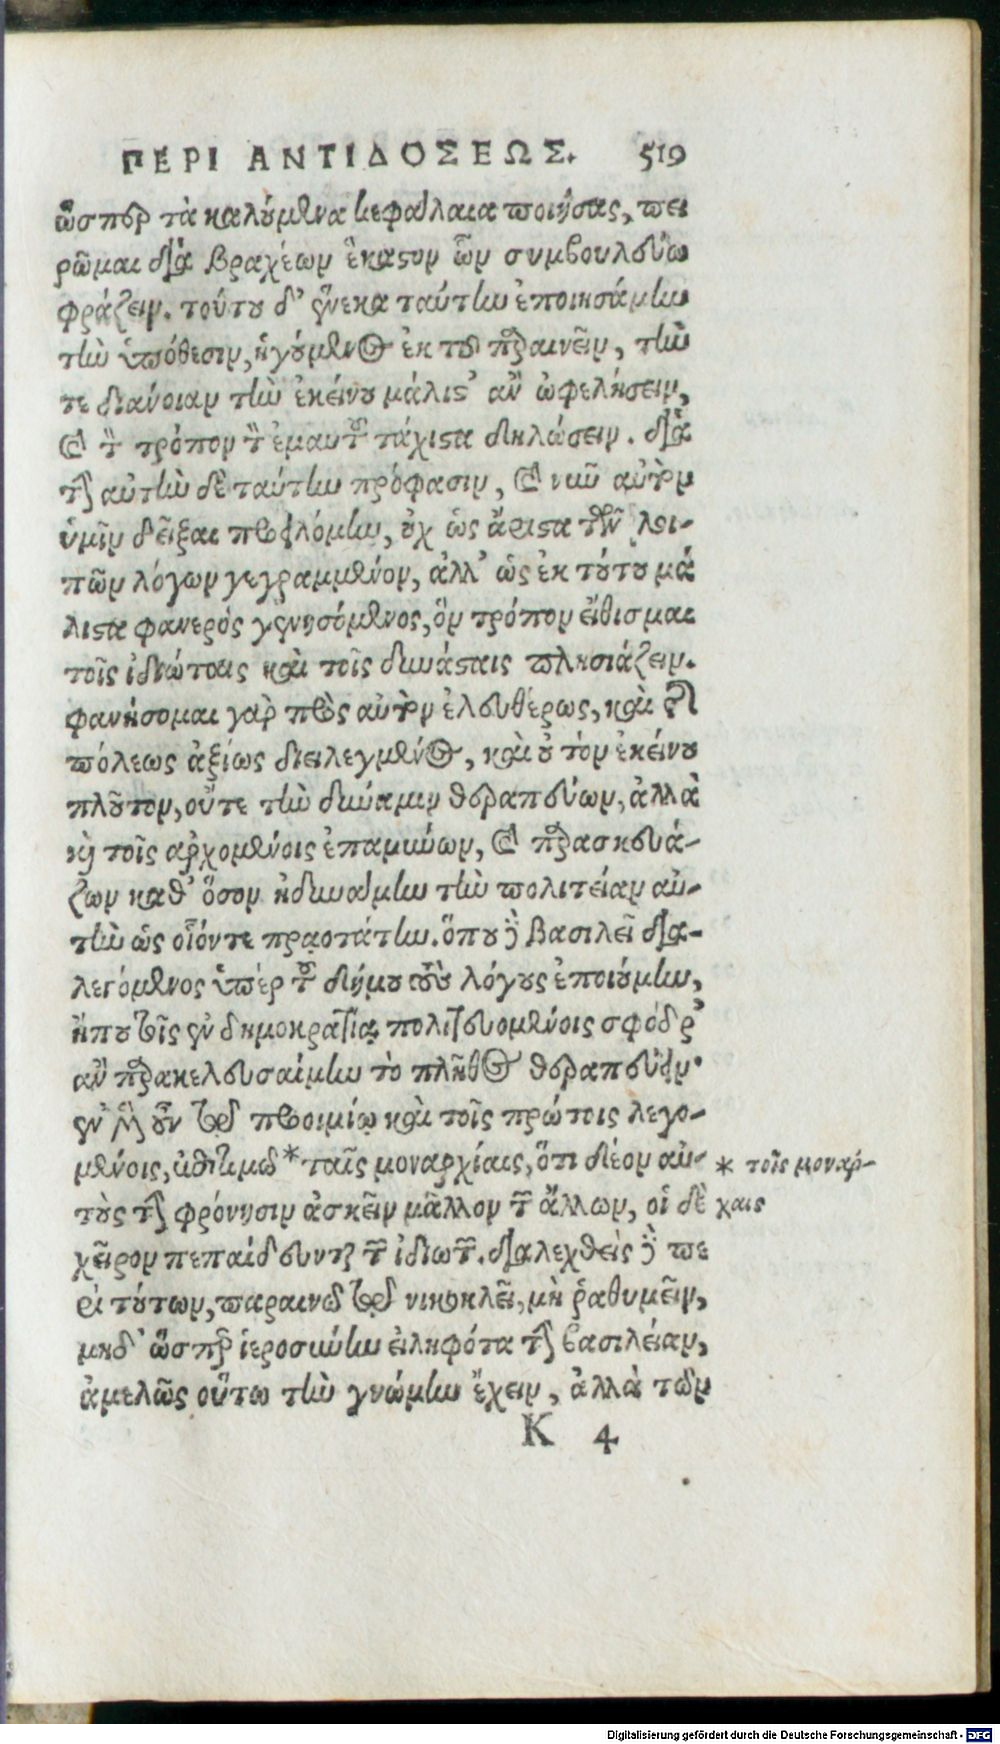 ΠΕΡΙ ΑΝΤΙΔΟΣΕΩΣ. 519
ὥσπερ τὰ καλούμενα κεφάλαια ποιήσας, πει
ρῶμαι διὰ βραχέων ἕκαστον ὧν συμβουλεύω
φράζειν. τούτου δ' ἕνεκα ταύτην ἐποιησάμην
τὴν ὑπόθεσιν, ἡγούμενος ἐκ τοῦ παραινεῖν, τὴν
τε διάνοιαν τὴν ἐκείνου μάλιστ' ἂν ὠφελήσειν,
καὶ τὸν τρόπον τὸν ἐμαυτοῦ τάχιστα δηλώσειν. διὰ
τὴν αὐτὴν δὲ ταύτην πρόφασιν, καὶ νῦν αὐτὸν
ὑμῖν δεῖξαι προειλόμην, οὐχ ὡς ἄριστα τῶν λοι-
πῶν λόγων γεγραμμένον, ἀλλ' ὡς ἐκ τούτου μά
λιστα φανερὸς γενησόμενος, ὃν τρόπον εἴθισμαι
τοῖς ἰδιώταις καὶ τοῖς δυνάσταις πλησιάζειν.
φανήσομαι γὰρ πρὸς αὐτὸν ἐλευθέρως, καὶ τῆς
πόλεως ἀξίως διειλεγμένος, καὶ οὐ τὸν ἐκείνου
πλοῦτον, οὔτε τὴν δύναμιν θεραπεύων, ἀλλὰ
καὶ τοῖς ἀρχομένοις ἐπαμύνων, καὶ παρασκευά-
ζων καθ' ὅσον ἠδυνάμην τὴν πολιτείαν αὐ-
τὴν ὡς οἷόντε πραοτάτην. ὅπου δὲ βασιλεῖ δια-
λεγόμενος ὑπὲρ τοῦ δήμου τοὺς λόγους ἐποιούμην,
ἤπου τοῖς ἐν δημοκρατίᾳ πολιτευομένοις σφόδρ'
ἂν παρακελευσαίμην τὸ πλῆθος θεραπεύειν·
ἐν μὲν οὖν τῷ προοιμίῳ καὶ τοῖς πρώτοις λεγο-
μένοις, ἐπιτιμῶ * ταῖς μοναρχίαις, ὅτι δέον αὐ-
τοὺς τὴν φρόνησιν ἀσκεῖν μᾶλλον τῶν ἄλλων, οἱ δὲ
χεῖρον πεπαίδευνται τῶν ἰδιωτῶν. διαλεχθεὶς δὲ πε
ρὶ τούτων, παραινῶ τῷ νικοκλεῖ, μὴ ῥαθυμεῖν,
μηδ' ὥσπερ ἱεροσύνην εἰληφότα τὴν βασιλείαν,
ἀμελῶς οὕτω τὴν γνώμην ἔχειν, ἀλλὰ τῶν
K 4
* τοῖς μονάρ-
χαις
Digitalisierung gefördert durch die Deutsche Forschungsgemeinschaft - DFG